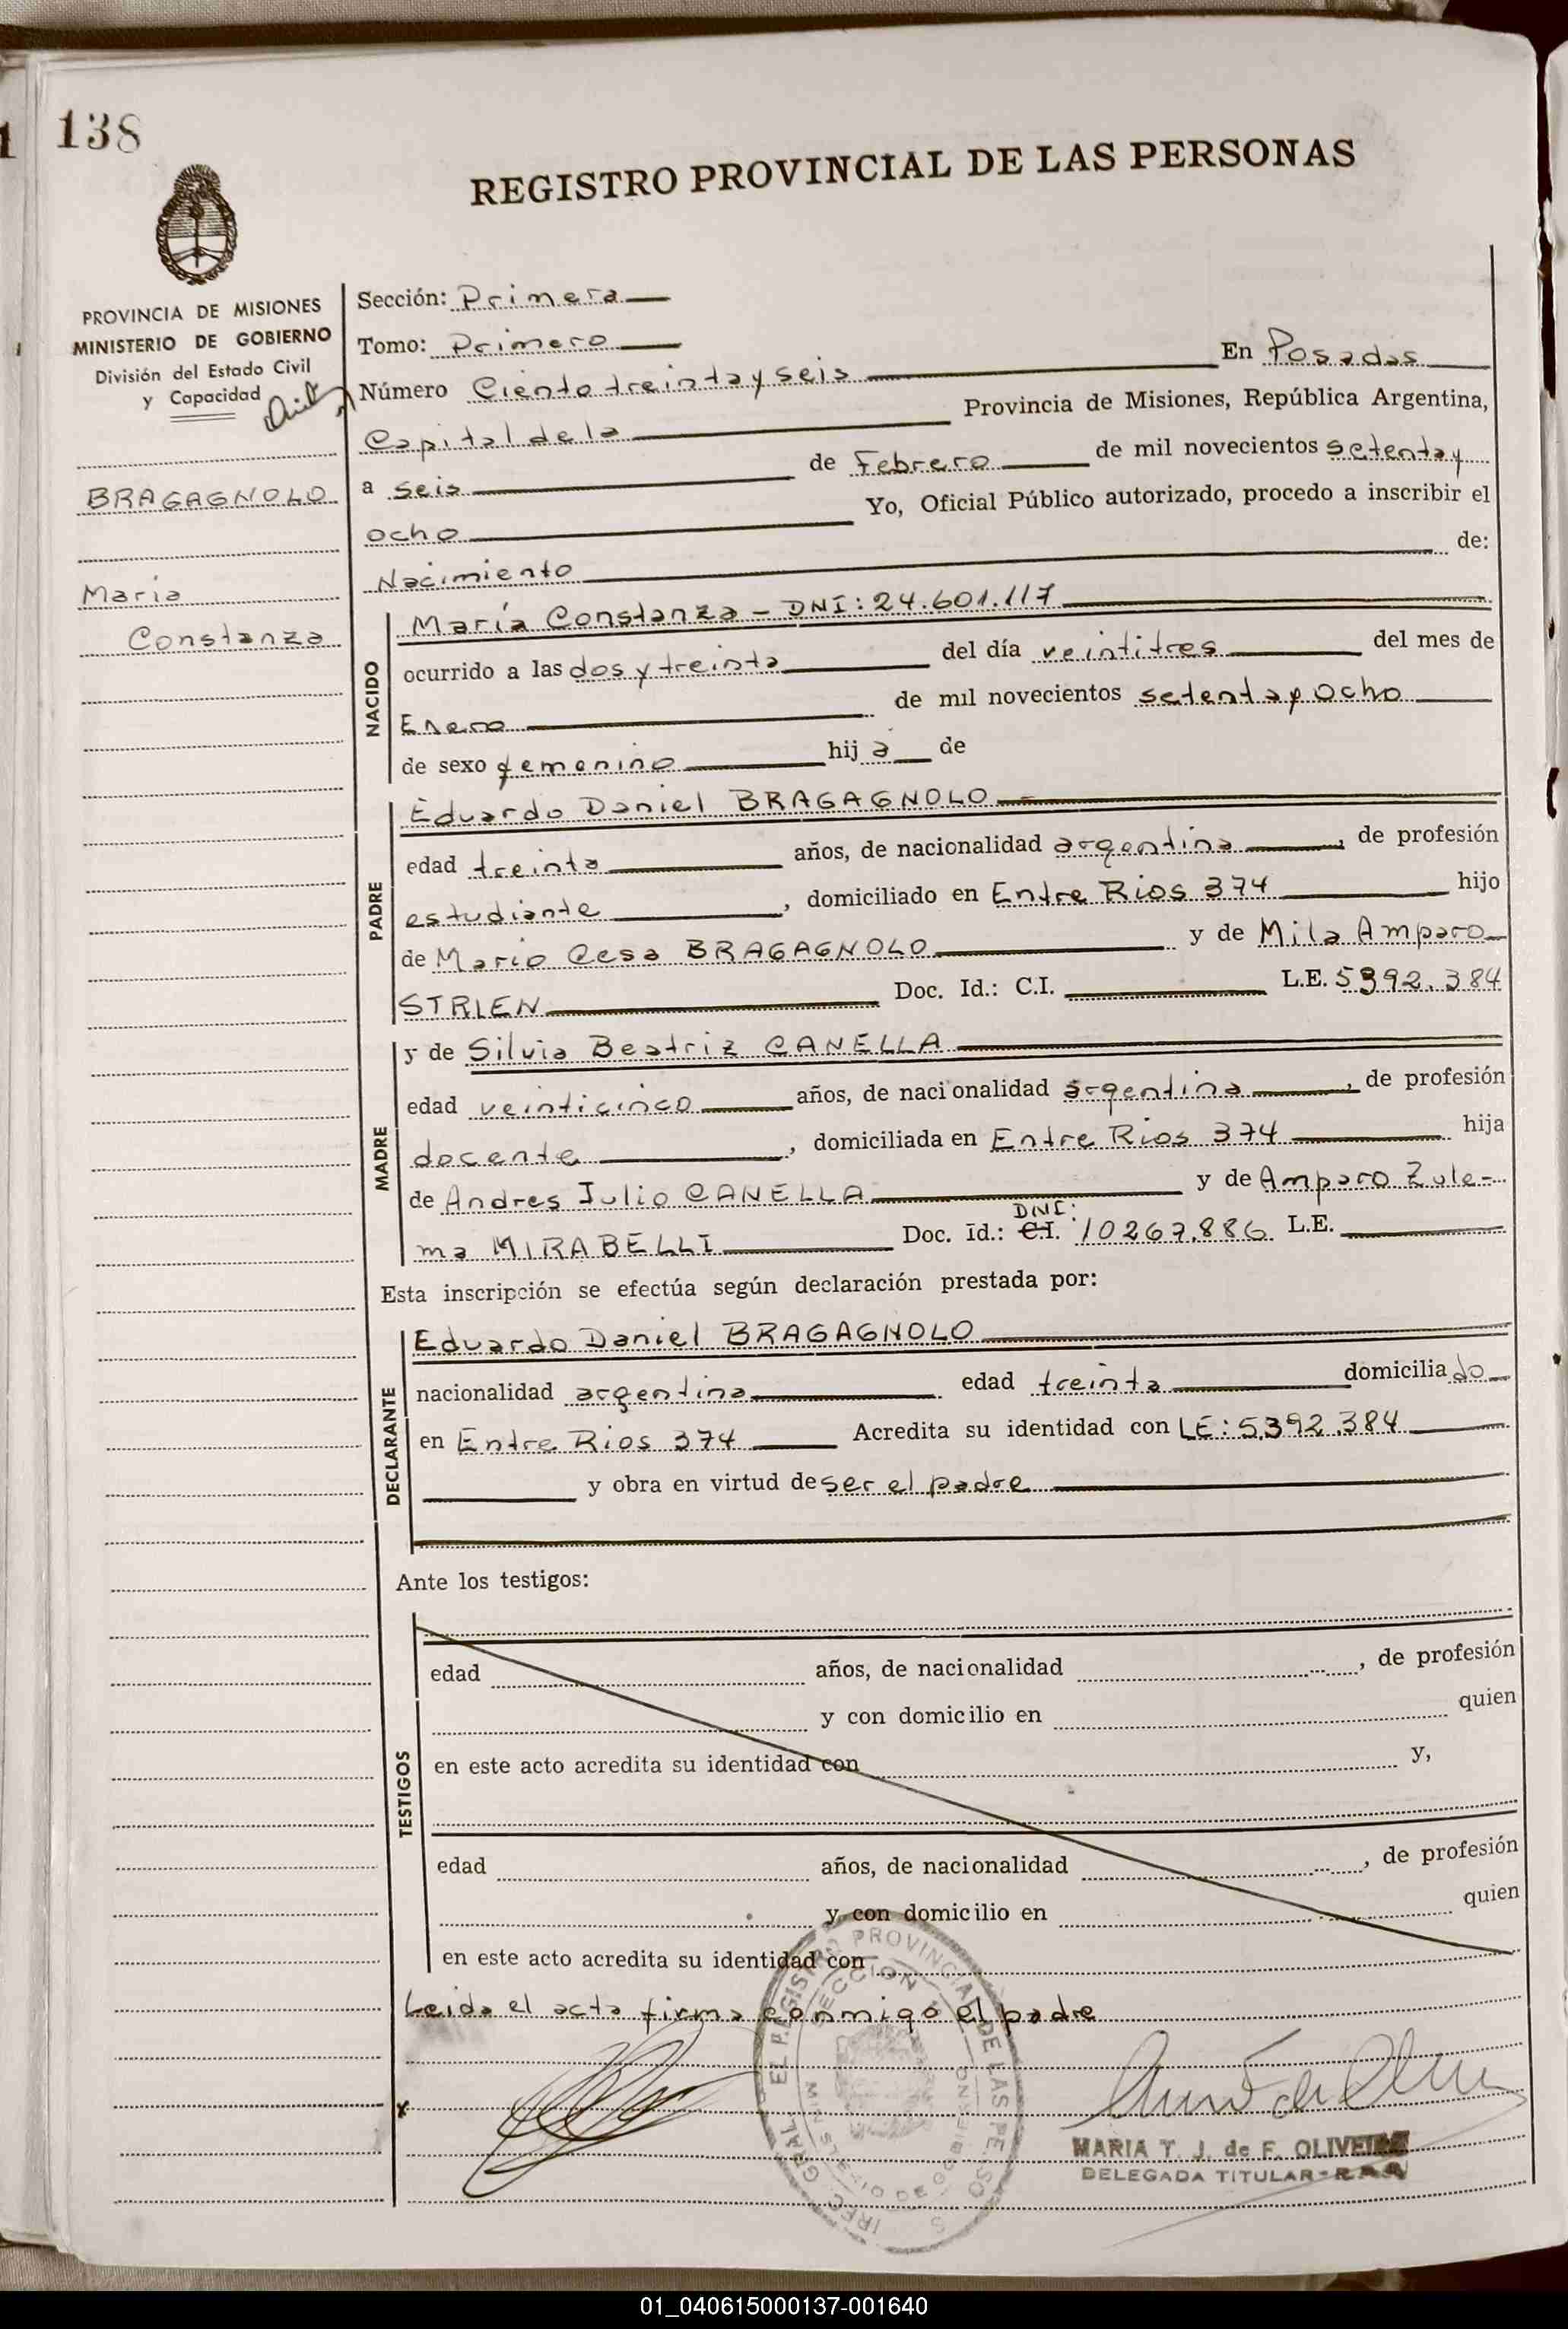 138
REGISTRO PROVINCIAL DE LAS PERSONAS
PROVINCIA DE MISIONES
MINISTERIO DE GOBIERNO
División del Estado Civil
y Capacidad
BRAGAGNOLO
María
Constanza
Sección: Primera
Tomo: Primero
Número Ciento treinta y seis En Posadas
Capital de la Provincia de Misiones, República Argentina,
a seis de Febrero de mil novecientos setenta y
ocho Yo, Oficial Público autorizado, procedo a inscribir el
Nacimiento de:
NACIDO
María Constanza - DNI: 24.601.117
ocurrido a las dos y treinta del día veintitres del mes de
Enero de mil novecientos setenta y ocho
de sexo femenino hija de
PADRE
Eduardo Daniel BRAGAGNOLO
edad treinta años, de nacionalidad argentina, de profesión
estudiante, domiciliado en Entre Rios 374 hijo
de Mario Cesa BRAGAGNOLO y de Mila Amparo
STRIEN Doc. Id.: C.I. L.E. 5392.384
MADRE
y de Silvia Beatriz CANELLA
edad veinticinco años, de nacionalidad argentina, de profesión
docente, domiciliada en Entre Rios 374 hija
de Andres Julio CANELLA y de Amparo Zule-
ma MIRABELLI Doc. Id.: C.I. DNI: 10267.886 L.E.
Esta inscripción se efectúa según declaración prestada por:
DECLARANTE
Eduardo Daniel BRAGAGNOLO
nacionalidad argentina edad treinta domiciliado
en Entre Rios 374 Acredita su identidad con LE: 5.392.384
y obra en virtud de ser el padre
Ante los testigos:
TESTIGOS
edad años, de nacionalidad , de profesión
y con domicilio en quien
en este acto acredita su identidad con y,
edad años, de nacionalidad , de profesión
y con domicilio en quien
en este acto acredita su identidad con
Leida el acta firma conmigo el padre
x
MARIA T. J. de F. OLIVEIRA
DELEGADA TITULAR
01_040615000137-001640